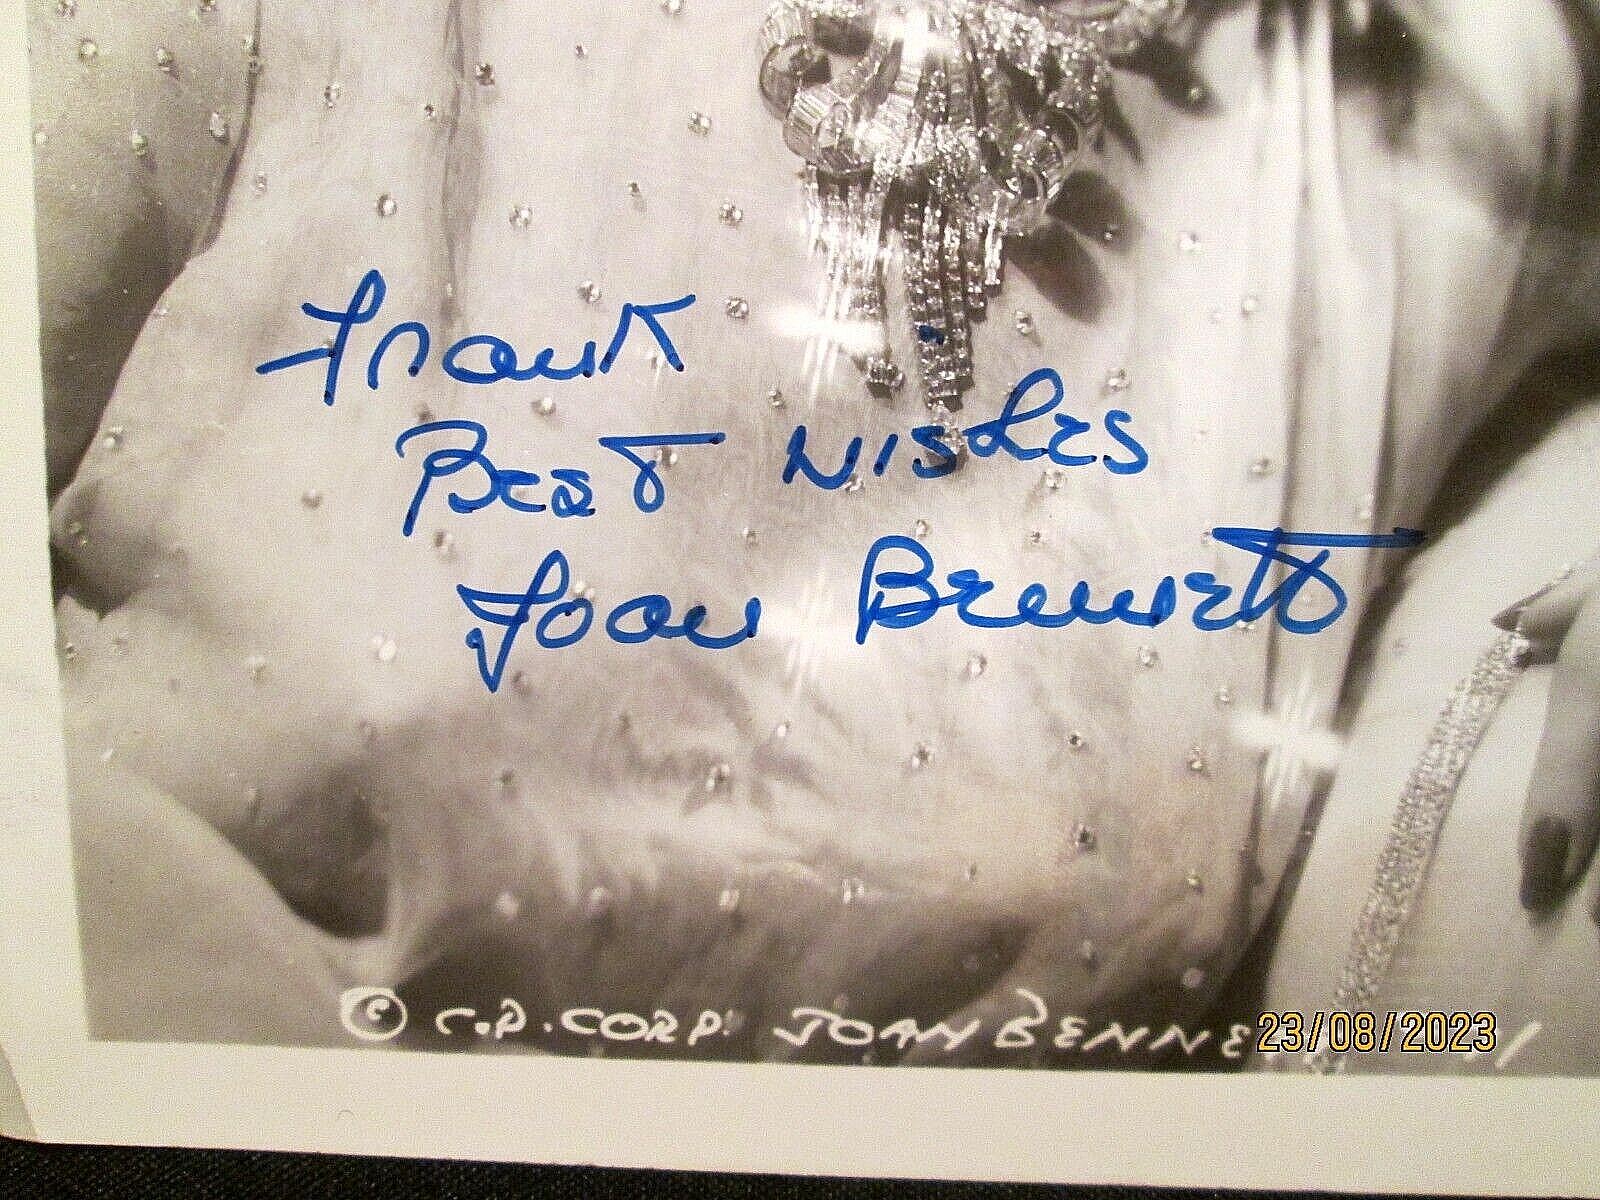 Frank
Best Wishes
Joan Bennett
© C.P. CORP. JOAN BENNE
23/08/2023